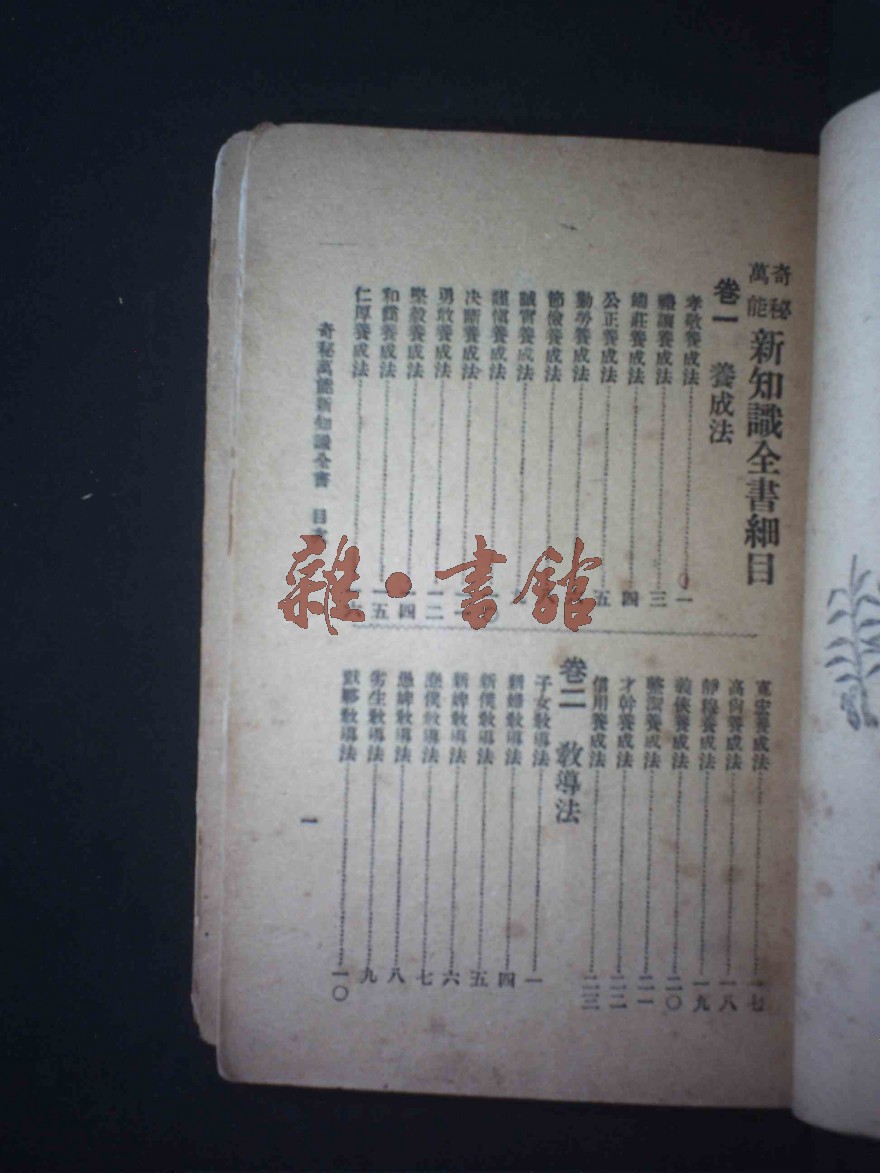 奇秘
萬能
新知識全書細目
卷一 養成法
孝敬養成法 一
禮讓養成法 三
端莊養成法 四
公正養成法 五
勤勞養成法
節儉養成法
誠實養成法
謹愼養成法
决斷養成法
勇敢養成法 一二
堅毅養成法 一四
和靄養成法 一五
仁厚養成法
寬宏養成法 一七
高尙養成法 一八
靜穆養成法 一九
義俠養成法 二〇
整潔養成法 二一
才幹養成法 二二
信用養成法 二三
卷二 敎導法
子女敎導法 一
新婦敎導法 四
新僕敎導法 五
新婢敎導法 六
僕敎導法 七
愚婢敎導法 八
劣生敎導法 九
敎導法 一〇
奇秘萬能新知識全書 目次
一
雜·書館